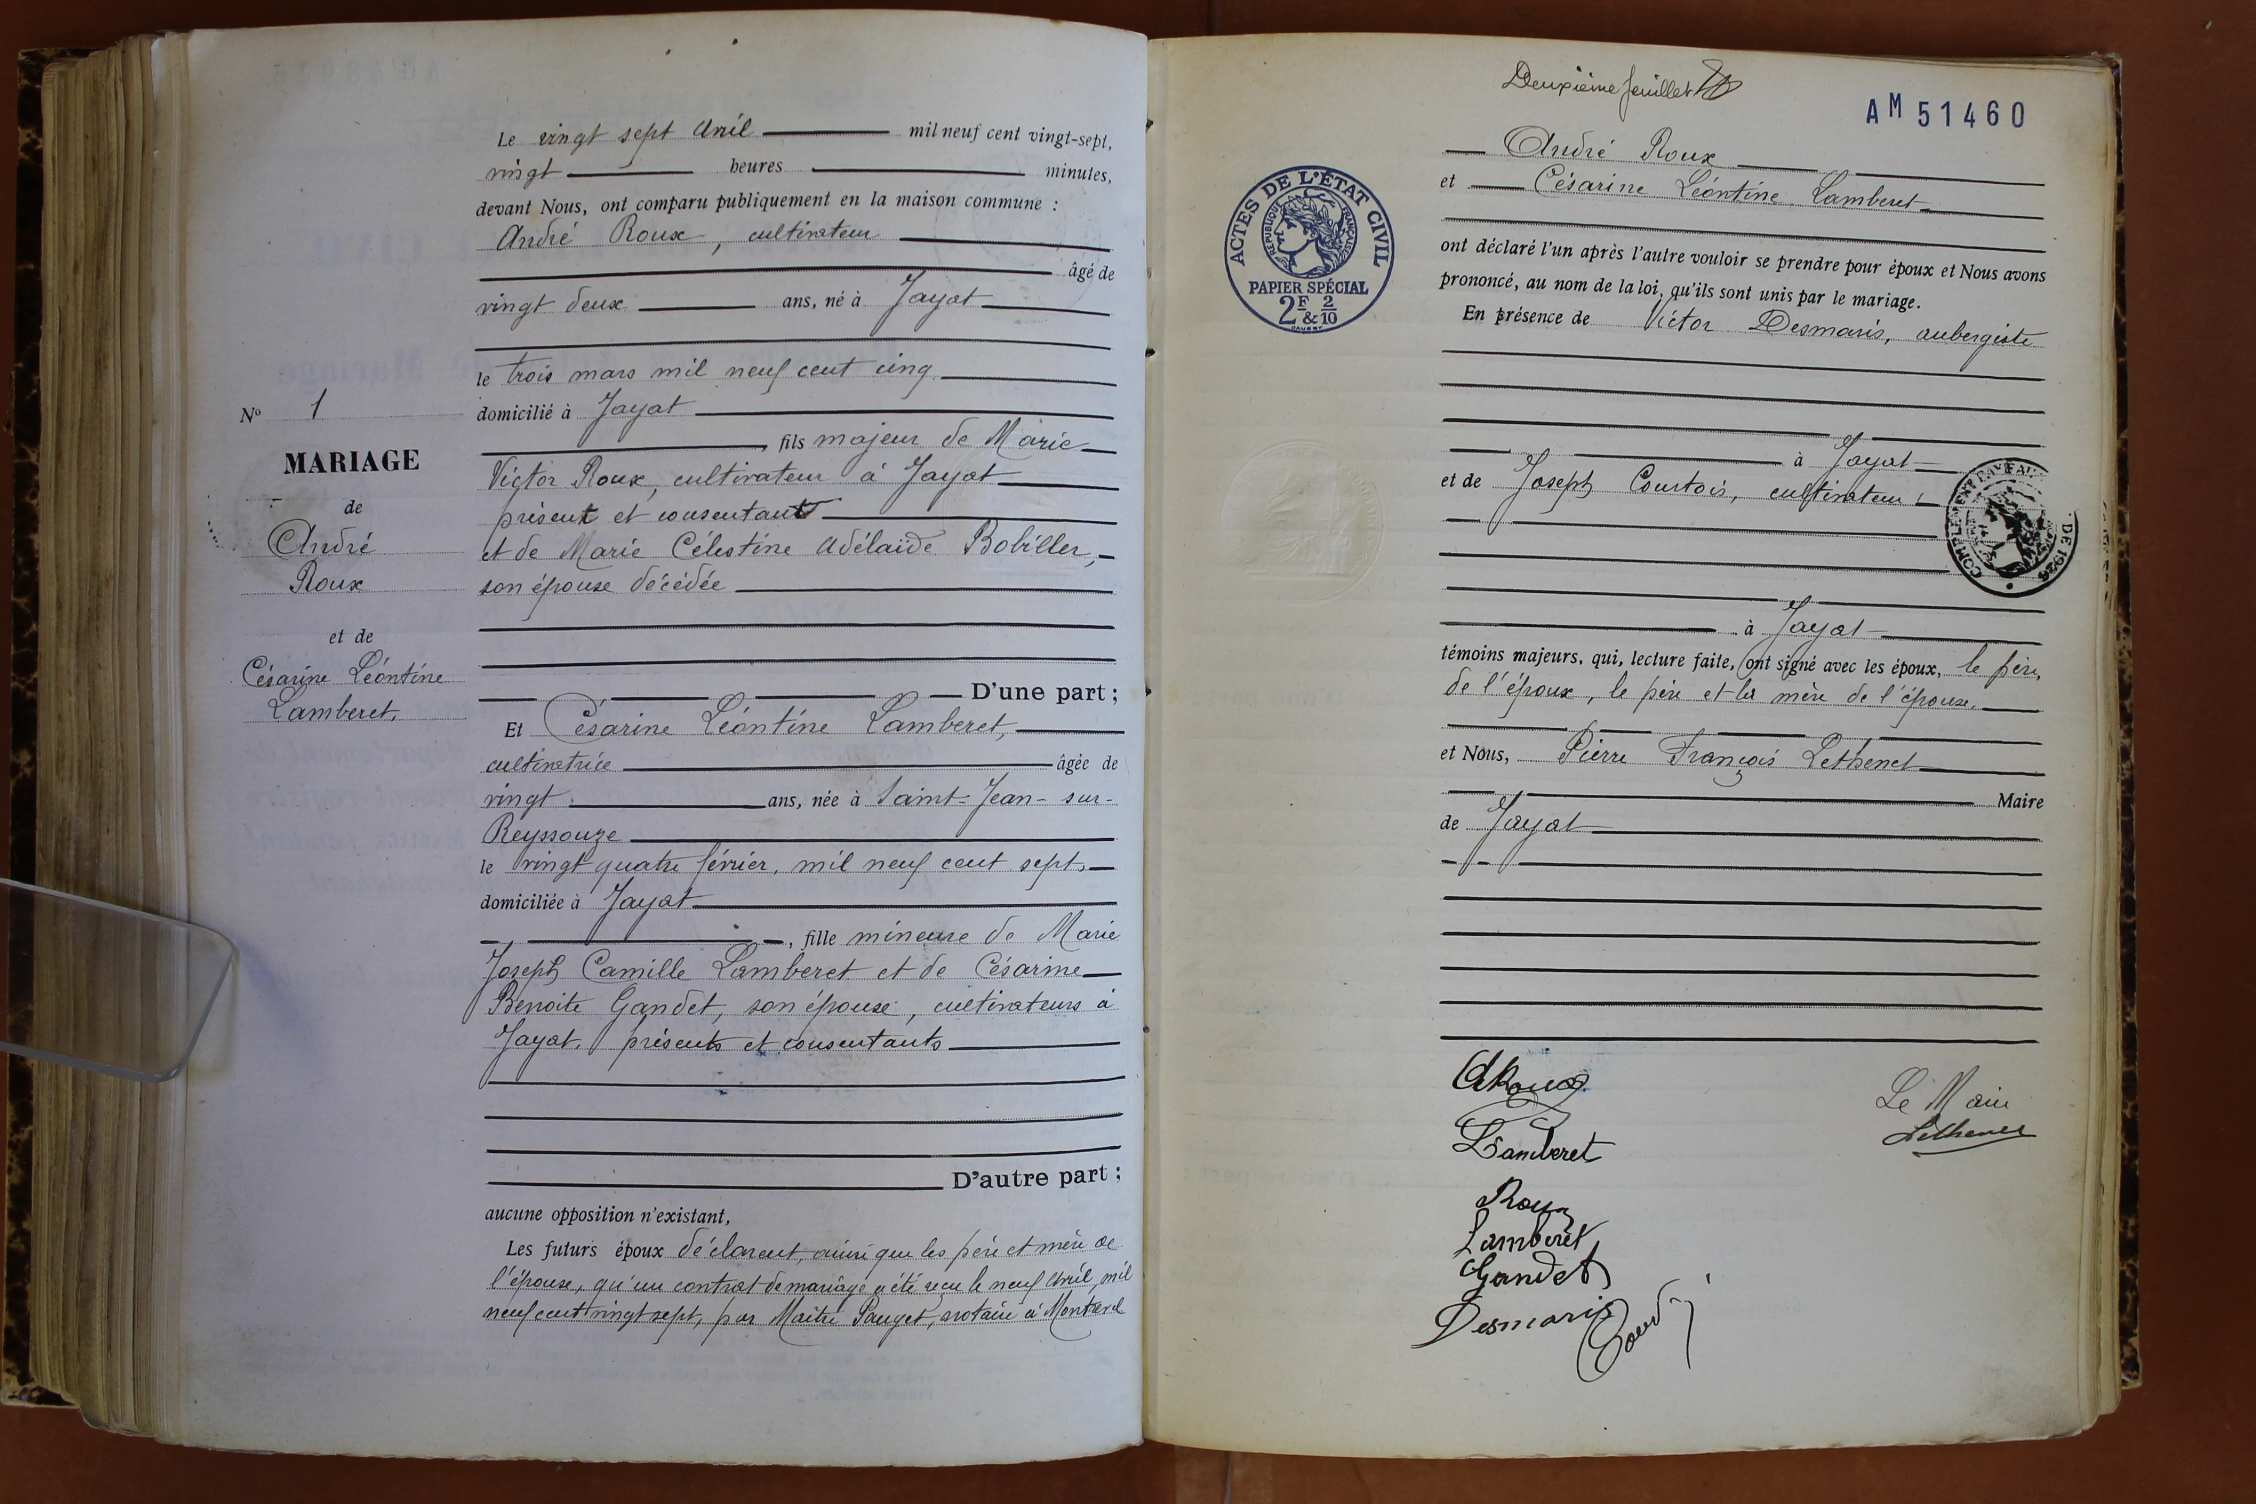 Le vingt sept avril mil neuf cent vingt-sept,
vingt heures minutes,
devant Nous, ont comparu publiquement en la maison commune :
André Roux, cultivateur
âgé de
vingt deux ans, né à Jayat
le trois mars mil neuf cent cinq
domicilié à Jayat
fils majeur de Marie
Victor Roux, cultivateur à Jayat
présent et consentant
et de Marie Célestine Adélaïde Bobiller,
son épouse décédée
D'une part ;
Nº 1
MARIAGE
de
André
Roux
et de
Césarine Léontine
Lamberet.
Et Césarine Léontine Lamberet,
cultivatrice âgée de
vingt ans, née à Saint-Jean-sur-
Reyssouze
le vingt quatre février, mil neuf cent sept,
domiciliée à Jayat
, fille mineure de Marie
Joseph Camille Lamberet et de Césarine
Benoite Gandet, son épouse, cultivateurs à
Jayat, présents et consentants
D'autre part ;
aucune opposition n'existant,
Les futurs époux déclarent, ainsi que les père et mère de
l'épouse, qu'un contrat de mariage a été reçu le neuf avril, mil
neuf cent vingt sept, par Maître Pauget, notaire à Montrevel
Deuxième feuillet
AM 51460
André Roux
et Césarine Léontine Lamberet
ont déclaré l'un après l'autre vouloir se prendre pour époux et Nous avons
prononcé, au nom de la loi, qu'ils sont unis par le mariage.
En présence de Victor Desmaris, aubergiste
à Jayat
et de Joseph Courtois, cultivateur,
à Jayat
témoins majeurs, qui, lecture faite, ont signé avec les époux, le père,
de l'époux, le père et la mère de l'épouse,
et Nous, Pierre François Lethenet
Maire
de Jayat
ACTES DE L'ÉTAT CIVIL
RÉPUBLIQUE FRANÇAISE
PAPIER SPÉCIAL
2F & 2/10
COMPLÉMENT
DE 1926
Roux
Lamberet
Roux
Lamberet
Gandet
Desmaris
Le Maire
Lethenet